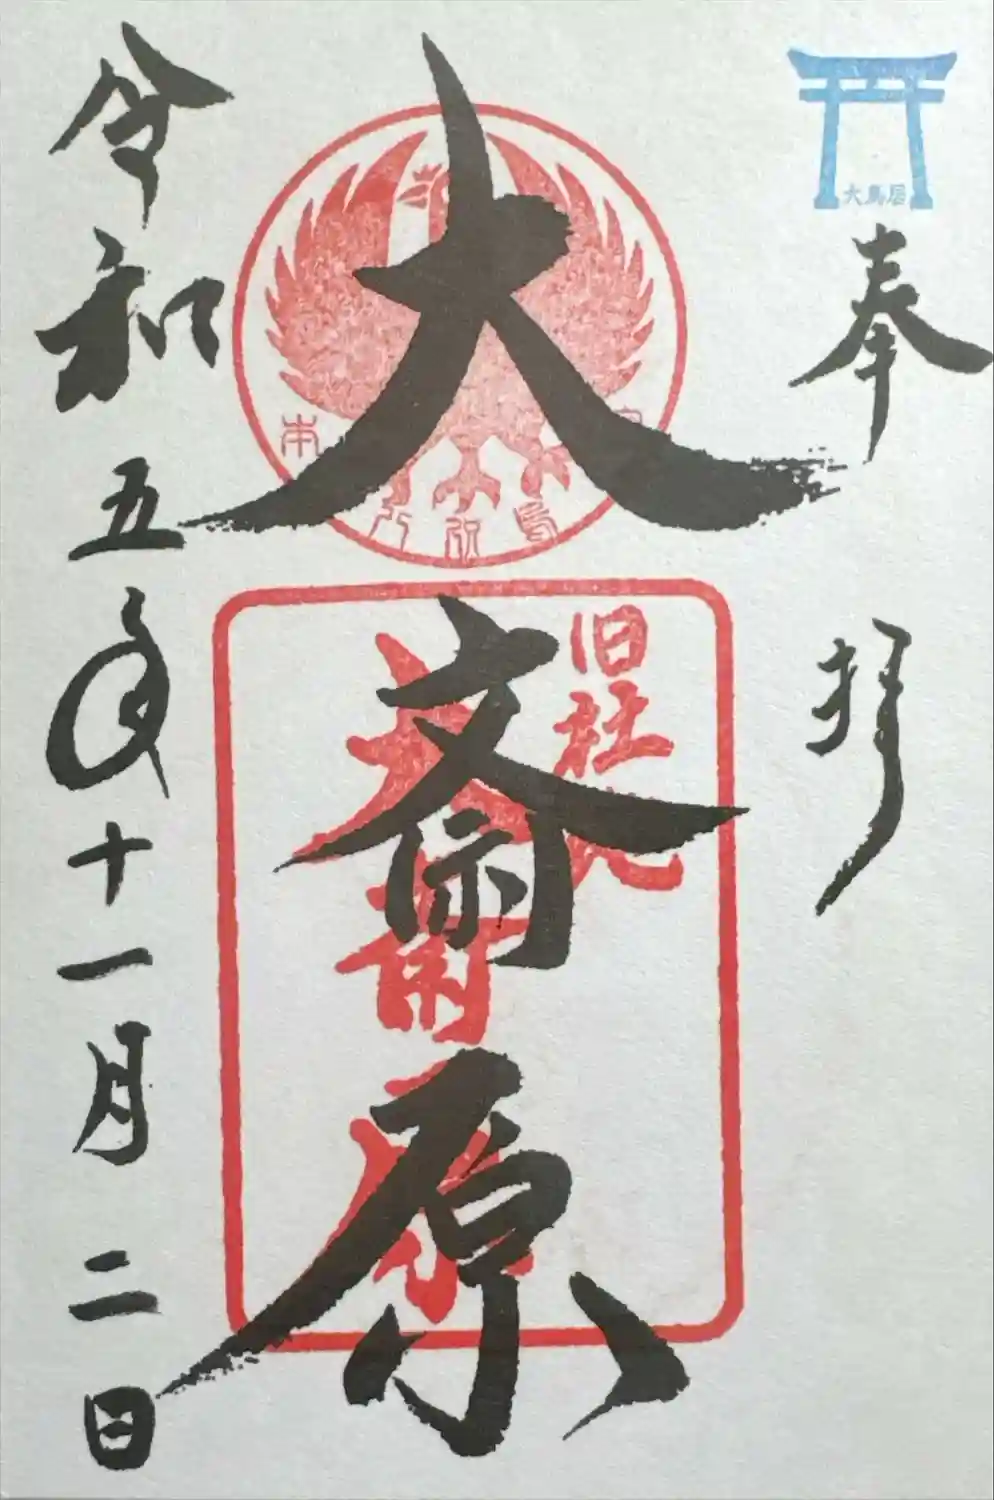 大鳥居
奉拝
大斎原
旧社地
大斎原
令和五年十一月二日